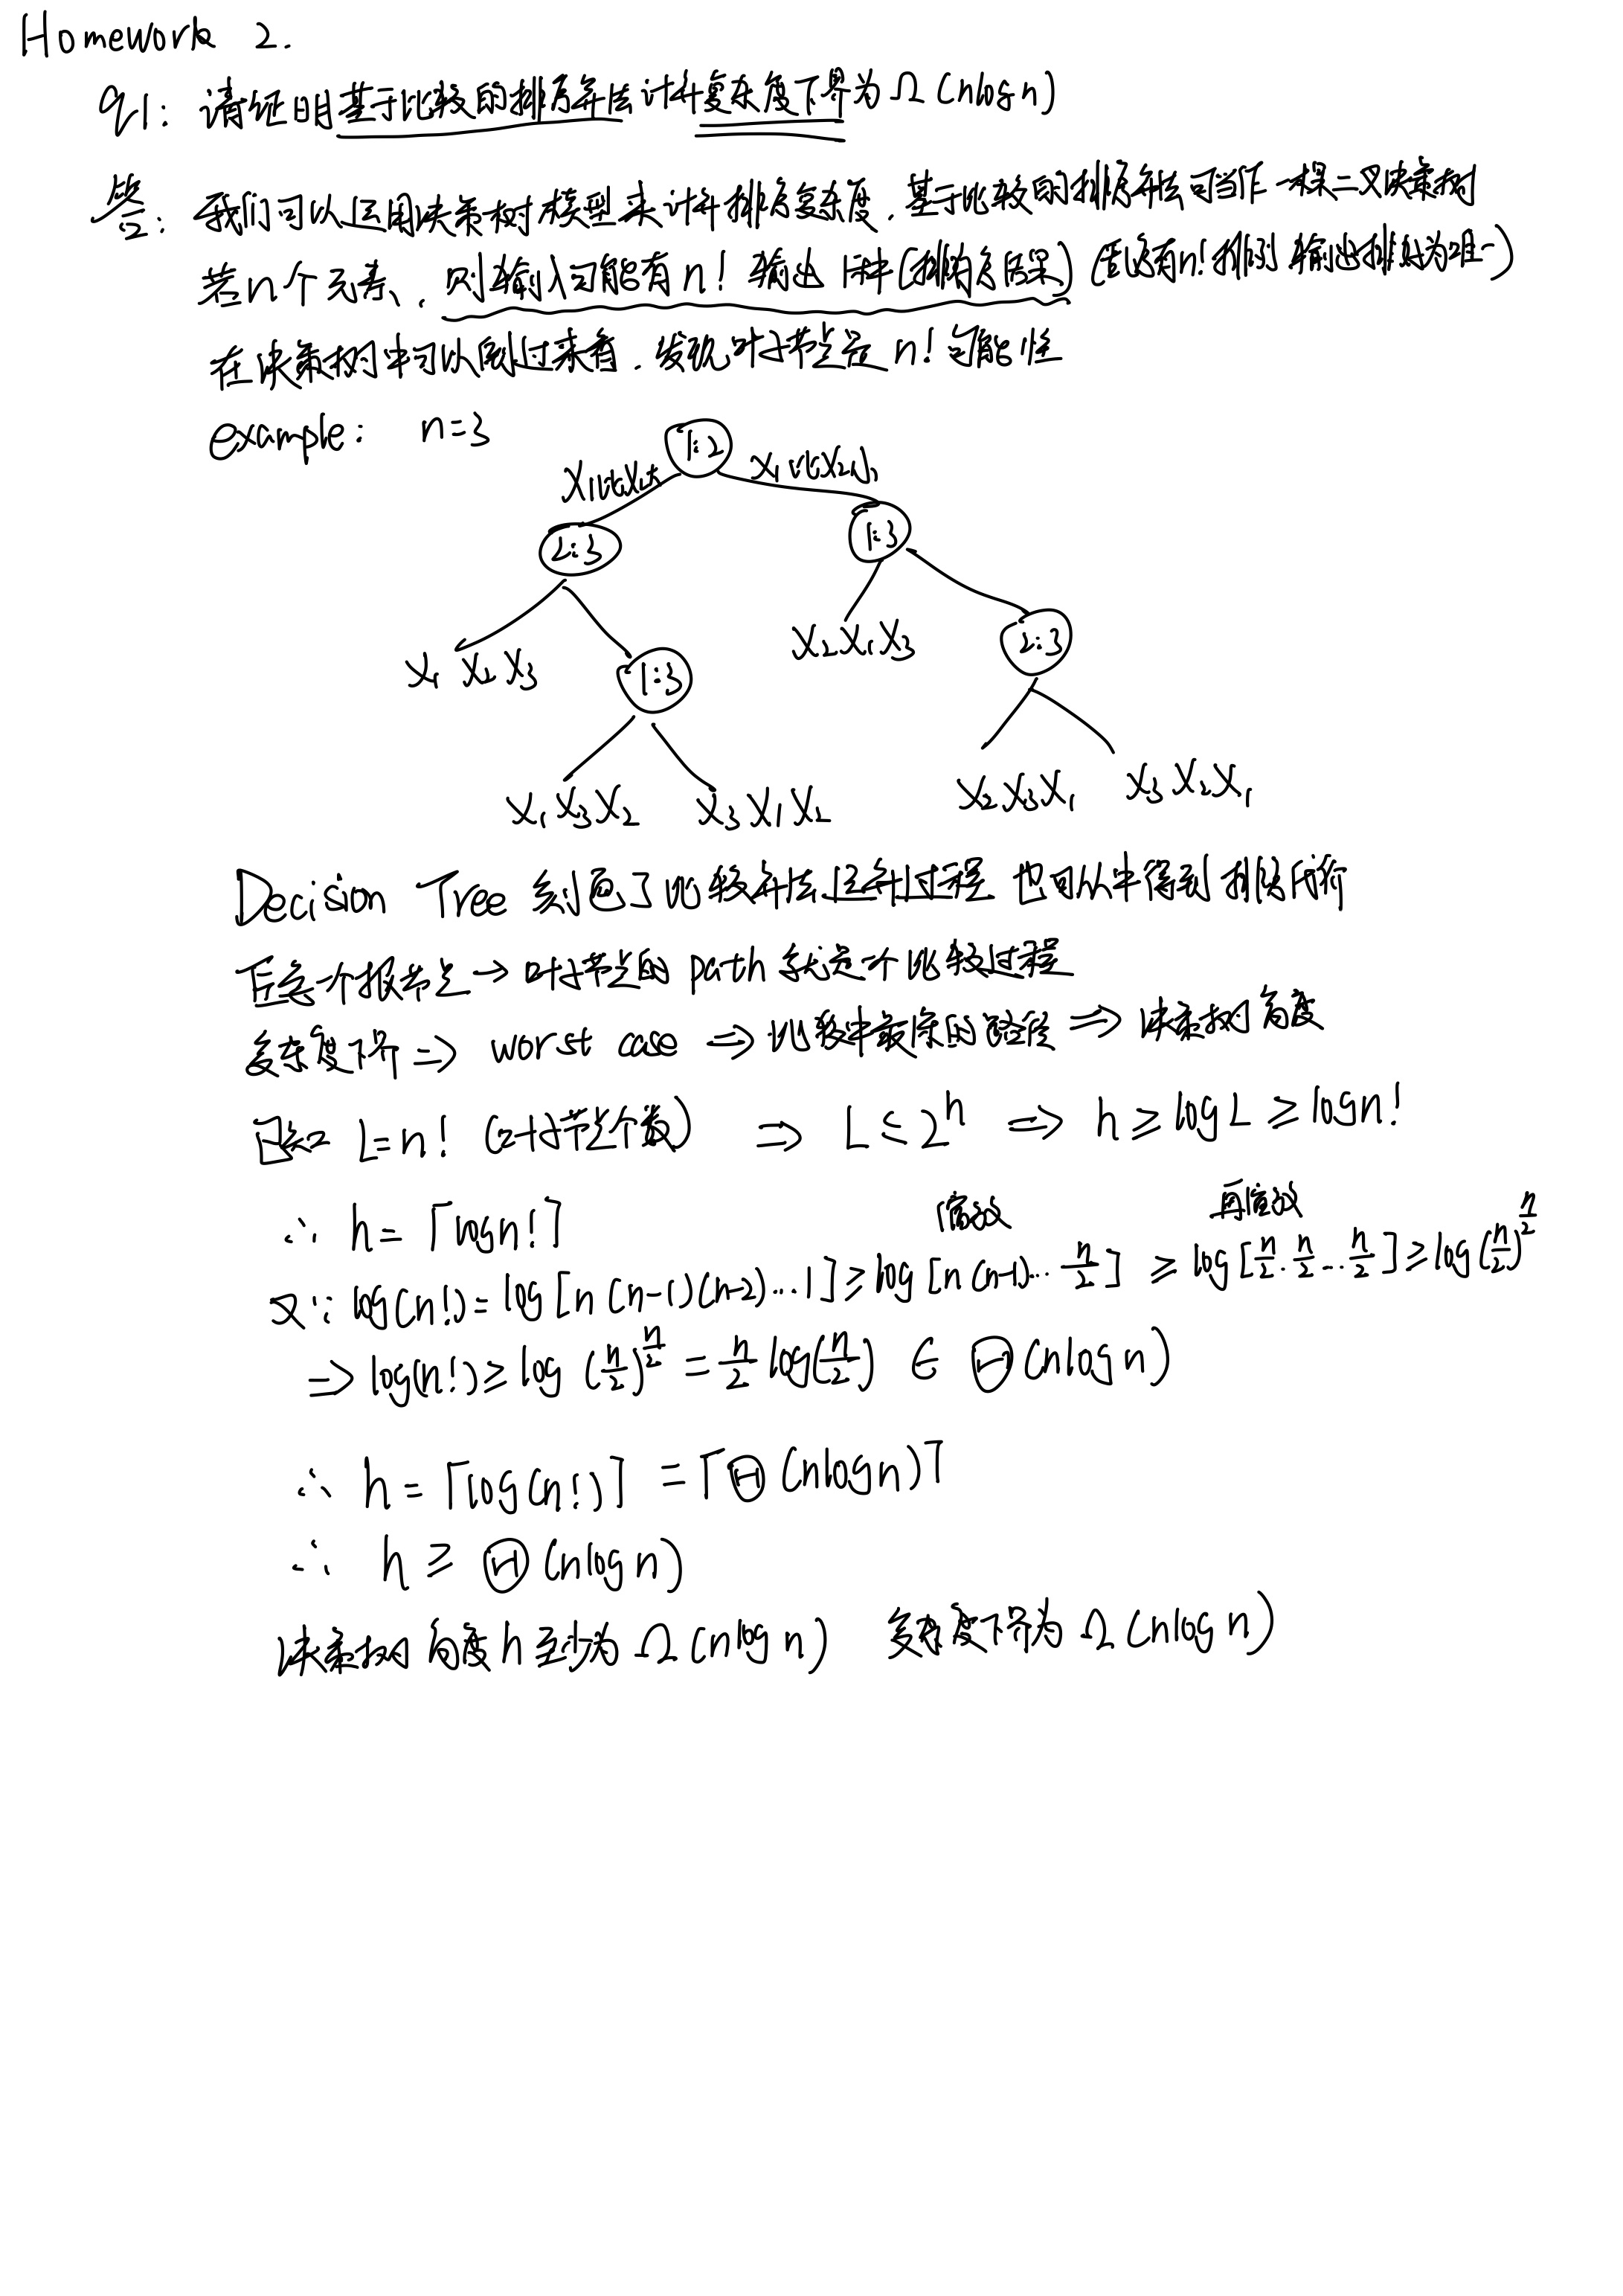 Homework 2.
q1: 请证明基于比较的排序算法计算复杂度下界为 Ω(nlogn)
答: 我们可以运用决策树模型来计算排序复杂度. 基于比较的排序算法可当作一棵二叉决策树
若n个元素, 则输入可能有 n! 输出 1种(排好序结果) (乱序有n!排列 输出排好为唯一)
在决策树中可以倒过来看. 发现叶子节点是 n! 可能性
example: n=3
1:2
X1比X2大 X1比X2小
2:3 1:3
X1 X2 X3 1:3 X2X1X3 2:3
X1X3X2 X3X1X2 X2X3X1 X3X2X1
Decision Tree 刻画了比较算法运算过程 也可从中得到排序代价
任意一个根节点→叶子节点的 path 就是一个比较过程
复杂度下界 ⇒ worst case ⇒ 比较中最深的路径 ⇒ 决策树高度
已知 L=n! (叶子节点个数) ⇒ L ≤ 2^h ⇒ h ≥ logL ≥ logn!
∴ h = ⌈logn!⌉
缩放 再缩放
又∵ log(n!) = log[n(n-1)(n-2)...1] ≥ log[n(n-1)...n/2] ≥ log[n/2·n/2...n/2] ≥ log(n/2)^(n/2)
⇒ log(n!) ≥ log(n/2)^(n/2) = n/2 log(n/2) ∈ Θ(nlogn)
∴ h = ⌈log(n!)⌉ = ⌈Θ(nlogn)⌉
∴ h ≥ Θ(nlogn)
决策树高度 h 至少为 Ω(nlogn) 复杂度下界为 Ω(nlogn)